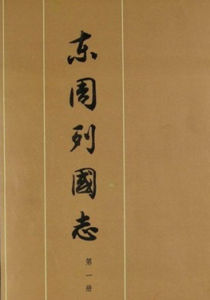 东周列國志
第一册